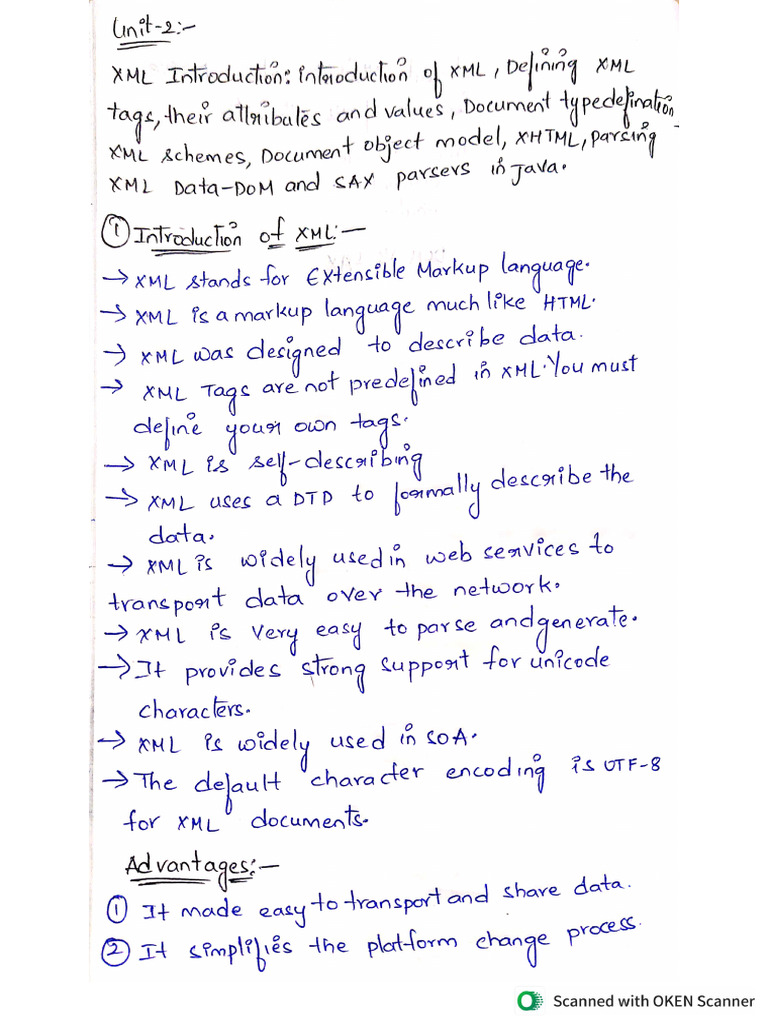 Unit-2:-
XML Introduction: introduction of XML, Defining XML
tags, their attributes and values, Document typedefination
XML schemes, Document object model, XHTML, parsing
XML Data-DOM and SAX parsers in Java.
① Introduction of XML:-
→ XML stands for Extensible Markup language.
→ XML is a markup language much like HTML.
→ XML was designed to describe data.
→ XML Tags are not predefined in XML. You must
define your own tags.
→ XML is self-describing
→ XML uses a DTD to formally describe the
data.
→ XML is widely used in web services to
transport data over the network.
→ XML is very easy to parse and generate.
→ It provides strong support for unicode
characters.
→ XML is widely used in SOA.
→ The default character encoding is UTF-8
for XML documents.
Advantages:-
① It made easy to transport and share data.
② It simplifies the platform change process.
Scanned with OKEN Scanner